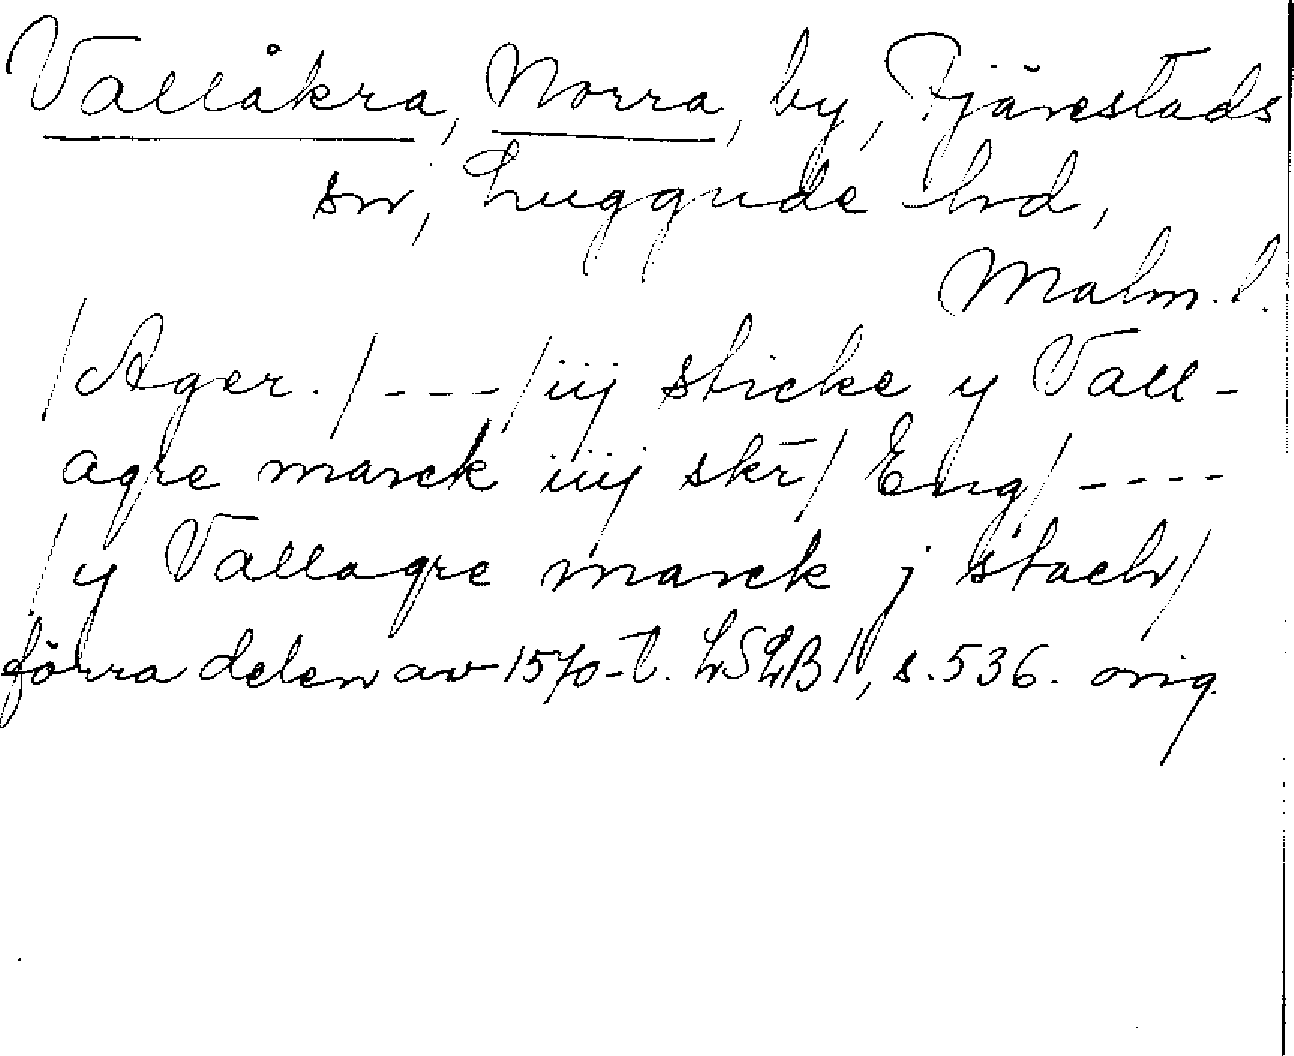 Vallåkra, Norra, by, Fjärestads
sn, Luggude hd,
Malm. l.
/Ager./ - - - /iij sticke y Vall-
agre marck iiij skr/ Eng/ - - - -
/y Vallagre marck j stach/
förra delen av 1570-t. LSLB IV, s. 536. orig.